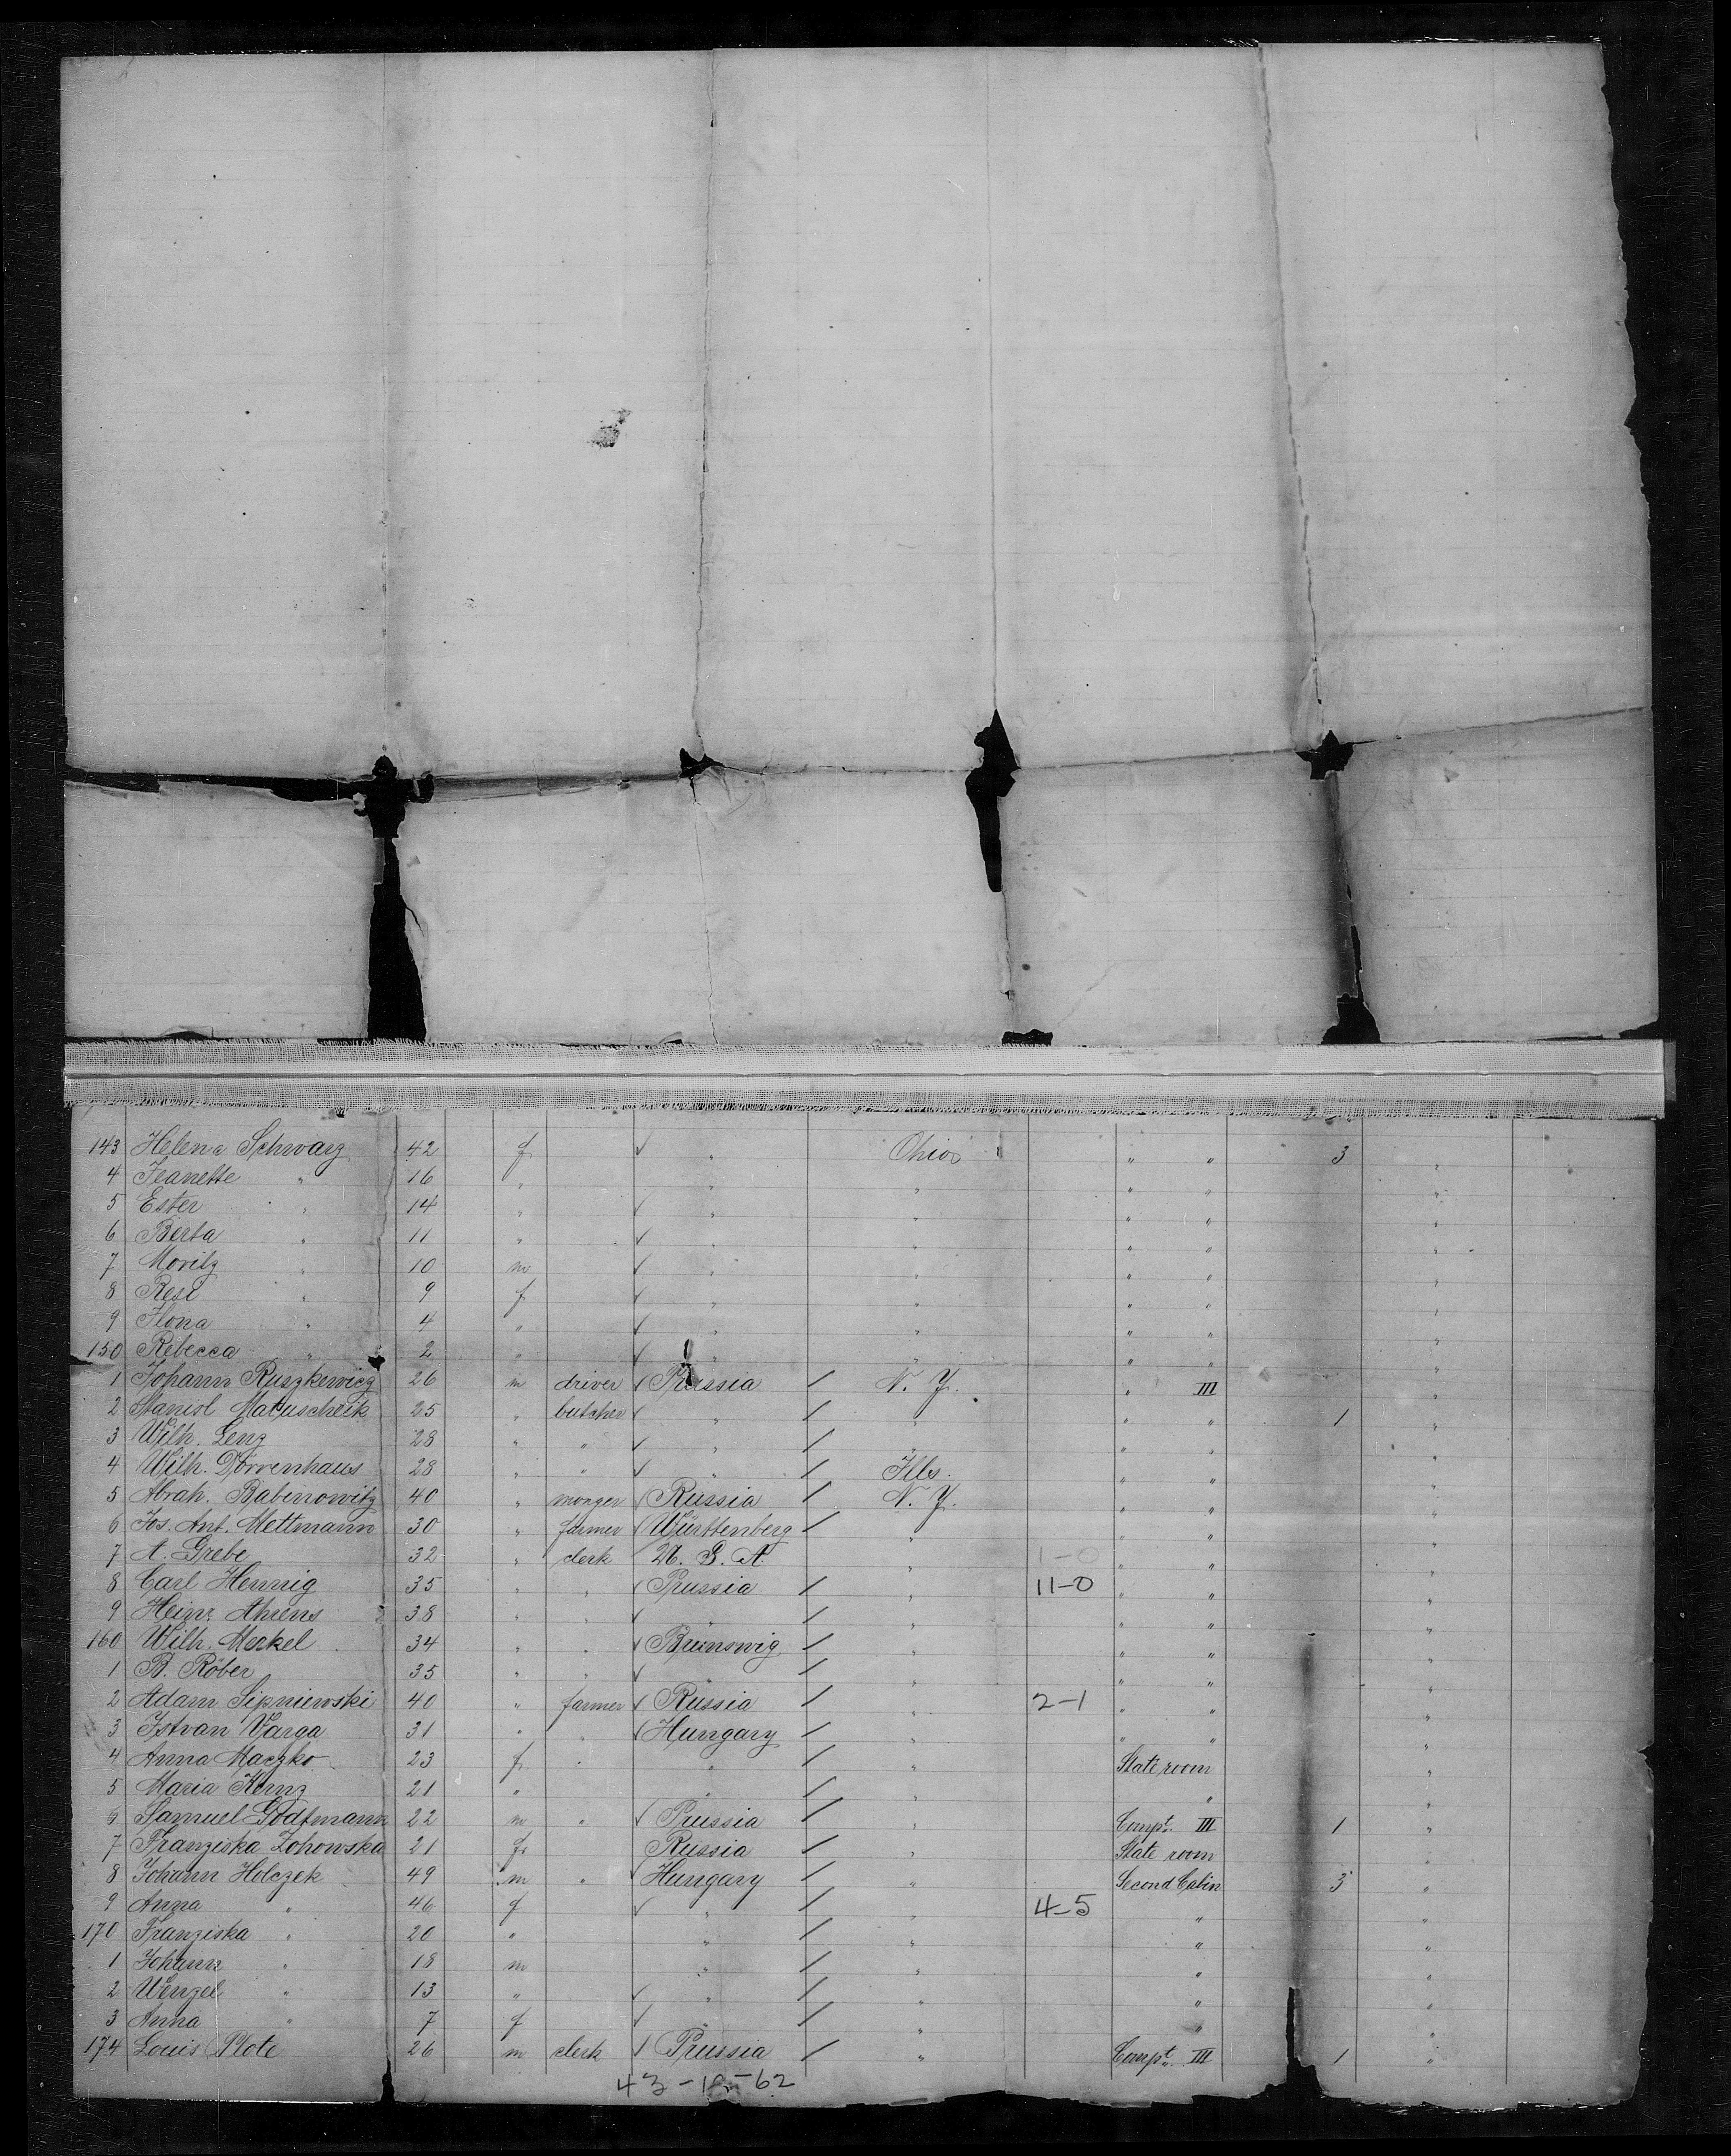 143 Helena Schwarz 42 f ✓ " Ohio " " 3 "
4 Jeanette " 16 " " " " " "
5 Ester " 14 " ✓ " " " " "
6 Berta " 11 " ✓ " " " " "
7 Moritz " 10 m ✓ " " " " "
8 Resi " 9 f ✓ " " " " "
9 Ilona " 4 " ✓ " " " " "
150 Rebecca " 2 " ✓ " " " "
1 Johann Ruszkewicz 26 m driver ✓ Prussia / N. Y. " III "
2 Stanisl Matuscheik 25 " butcher ✓ " / " " " 1 "
3 Wilh. Lenz 28 " " ✓ " / " " " "
4 Wilh. Dörrenhaus 28 " " ✓ " / Ills. " " "
5 Abrah. Babinowitz 40 " monger ✓ Russia / N. Y. " " "
6 Jos. Ant. Mettmann 30 " farmer ✓ Württenberg / " " " "
7 A. Grebe 32 " clerk U. S. A. " 1-0 " " "
8 Carl Hennig 35 " " ✓ Prussia / " 11-0 " " "
9 Heinr. Ahrens 38 " " ✓ " / " " " "
160 Wilh. Merkel 34 " " ✓ Brunswig / " " " "
1 B. Röber 35 " " ✓ " / " " " "
2 Adam Sipniewski 40 " farmer ✓ Russia / " 2-1 " " "
3 Istvan Varga 31 " " ✓ Hungary / " " " "
4 Anna Maczko 23 f " " / " State room "
5 Maria Kenz 21 " " / " " "
6 Samuel Godtmann 22 m " ✓ Prussia / " Compt. III 1 "
7 Franziska Zohowska 21 f Russia " State room "
8 Johann Holczek 49 m " ✓ Hungary / " Second Cabin 3 "
9 Anna " 46 f ✓ " / " 4-5 " "
170 Franziska " 20 " " / " " "
1 Johann " 18 m " / " " "
2 Wenzel " 13 " ✓ " / " " "
3 Anna " 7 f ✓ " / " " "
174 Louis Plote 26 m clerk ✓ Prussia / " Compt. III 1 "